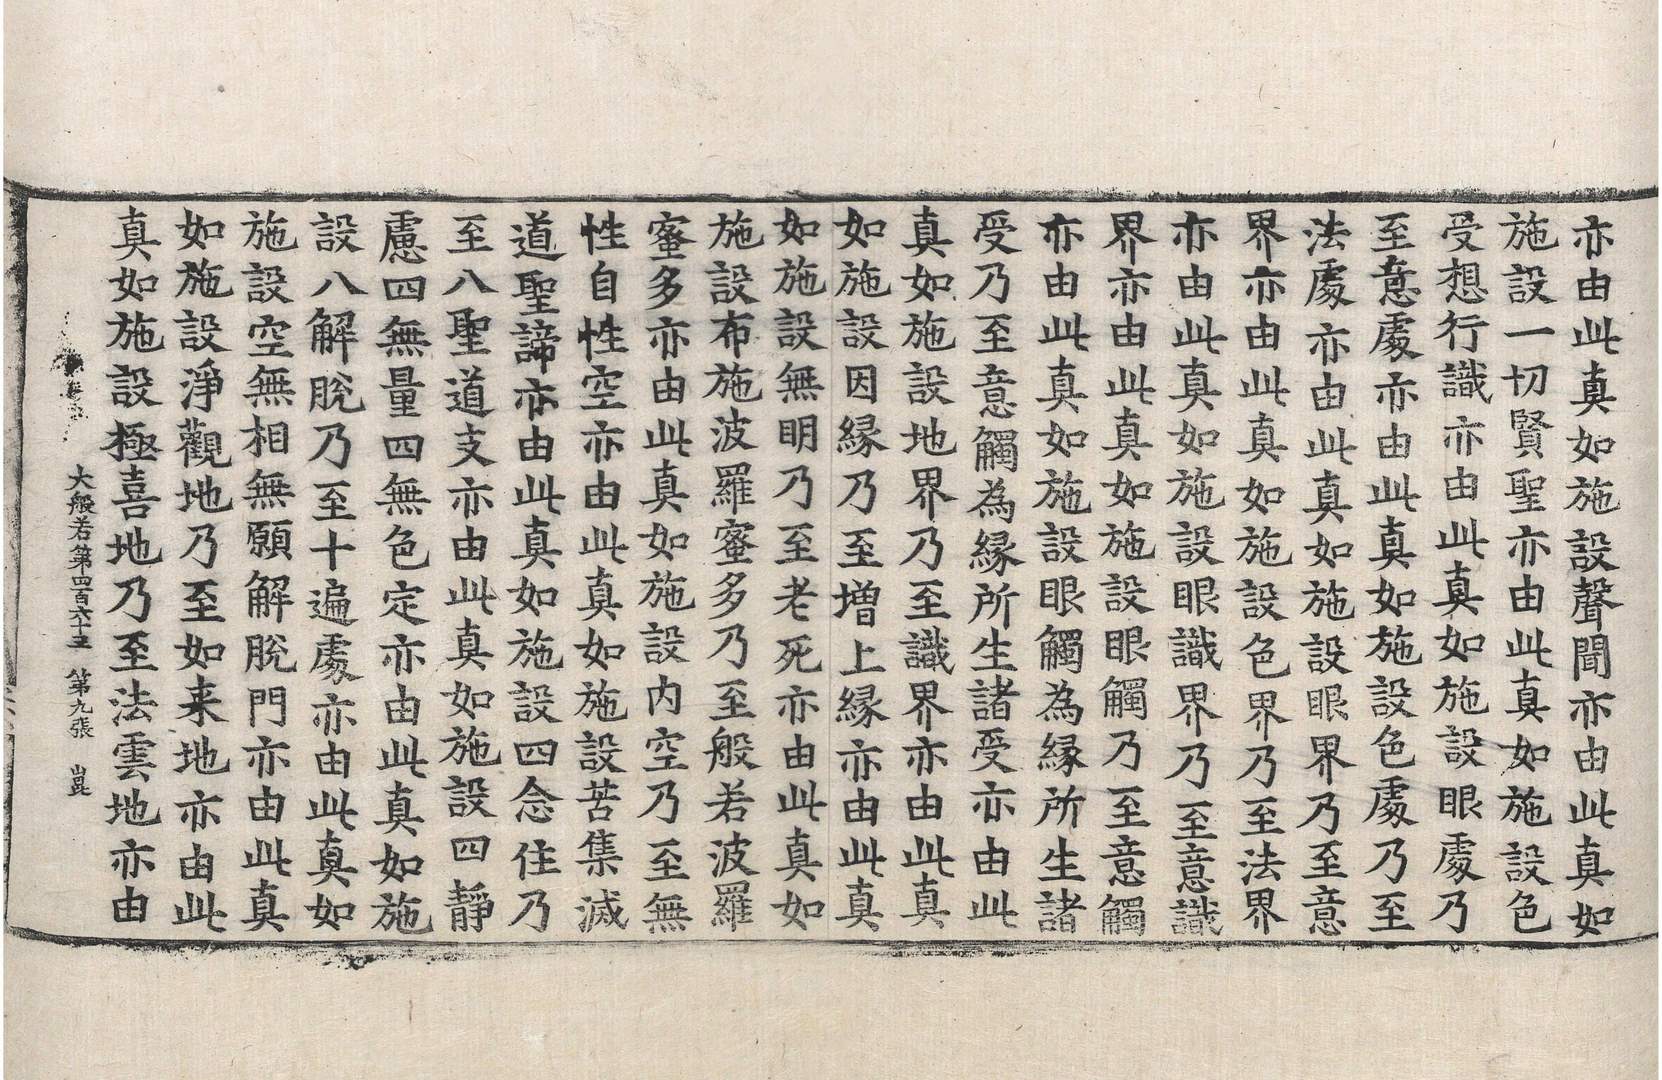 亦由此真如施設聲聞亦由此真如
施設一切賢聖亦由此真如施設色
受想行識亦由此真如施設眼處乃
至意處亦由此真如施設色處乃至
法處亦由此真如施設眼界乃至意
界亦由此真如施設色界乃至法界
亦由此真如施設眼識界乃至意識
界亦由此真如施設眼觸乃至意觸
亦由此真如施設眼觸為緣所生諸
受乃至意觸為緣所生諸受亦由此
真如施設地界乃至識界亦由此真
如施設因緣乃至增上緣亦由此真
如施設無明乃至老死亦由此真如
施設布施波羅蜜多乃至般若波羅
蜜多亦由此真如施設內空乃至無
性自性空亦由此真如施設苦集滅
道聖諦亦由此真如施設四念住乃
至八聖道支亦由此真如施設四靜
慮四無量四無色定亦由此真如施
設八解脫乃至十遍處亦由此真如
施設空無相無願解脫門亦由此真
如施設淨觀地乃至如来地亦由此
真如施設極喜地乃至法雲地亦由
大般若第四百六十三 第九張 崑